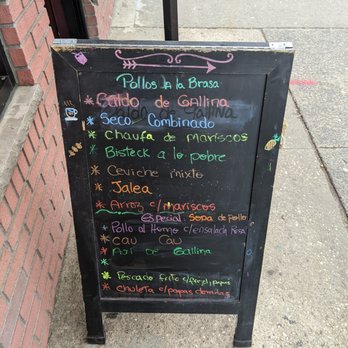 Pollos A la Brasa
Caldo de Gallina
Seco Combinado
Chaufa de Mariscos
Bisteck a lo pobre
Ceviche mixto
Jalea
Arroz c/mariscos
Especial: Sopa de pollo
Pollo al Horno c/ensalada Rusa
Cau Cau
Aji de Gallina
Pescado frito c/ papas
Chuleta c/papas doradas